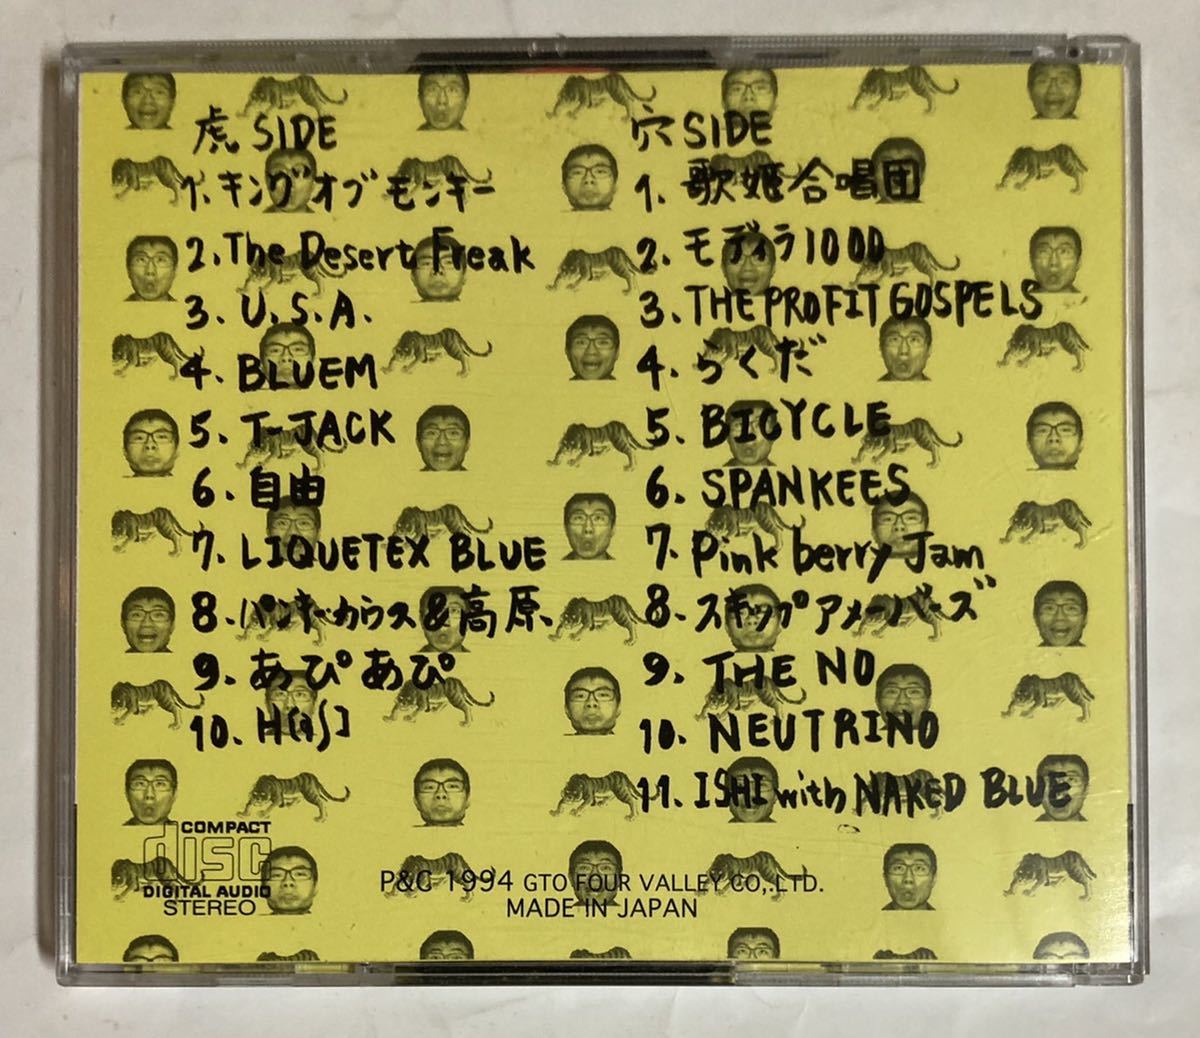 虎 SIDE
1. キングオブモンキー
2. The Desert Freak
3. U.S.A.
4. BLUEM
5. T-JACK
6. 自由
7. LIQUETEX BLUE
8. パンキーカウス&高原、
9. あぴあぴ
10. H[
穴 SIDE
1. 歌姫合唱団
2. モディラ1000
3. THE PROFIT GOSPELS
4. らくだ
5. BICYCLE
6. SPANKEES
7. Pink berry Jam
8. スキップアメーバーズ
9. THE NO
10. NEUTRINO
11. ISHI with NAKED BLUE
COMPACT
disc
DIGITAL AUDIO
STEREO
P&C 1994 GTO FOUR VALLEY CO,.LTD.
MADE IN JAPAN